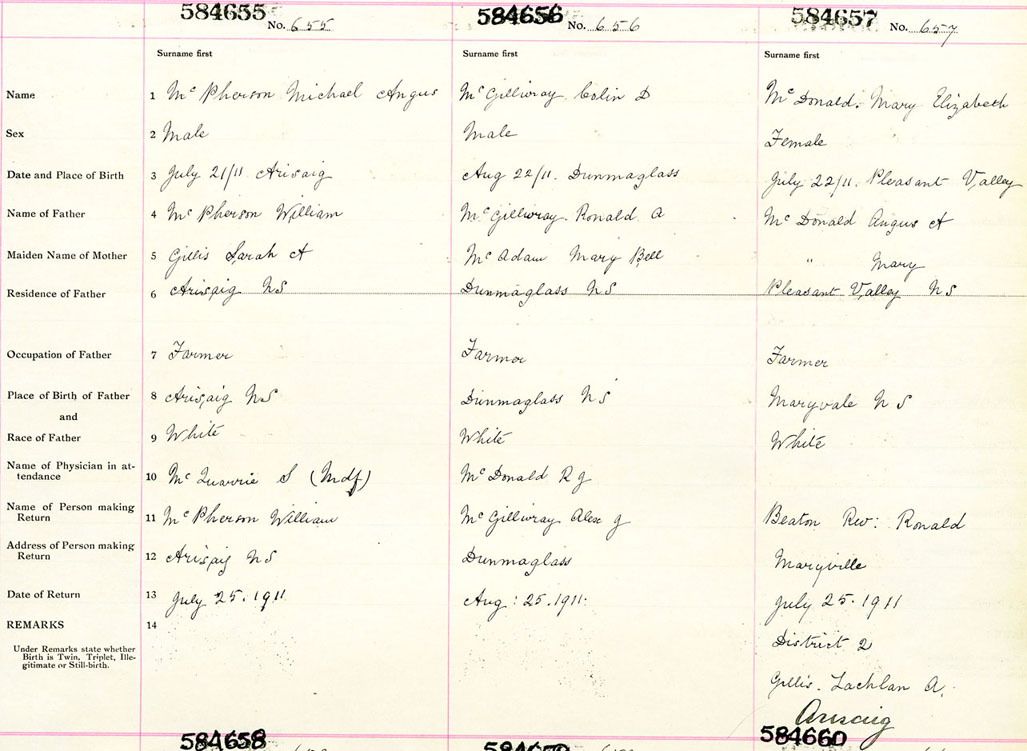 584655 584656 584657
No. 655 No. 656 No. 657
Surname first Surname first Surname first
Name 1 Mc Pherson Michael Angus Mc Gillivray Colin D Mc Donald. Mary Elizabeth
Sex 2 Male Male Female
Date and Place of Birth 3 July 21/11 Arisaig Aug 22/11. Dunmaglass July 22/11. Pleasant Valley
Name of Father 4 Mc Pherson William Mc Gillivray Ronald A Mc Donald Angus A
Maiden Name of Mother 5 Gillis Sarah A Mc Adam Mary Bell " Mary
Residence of Father 6 Arisaig NS Dunmaglass NS Pleasant Valley NS
Occupation of Father 7 Farmer Farmer Farmer
Place of Birth of Father 8 Arisaig NS Dunmaglass NS Maryvale NS
and
Race of Father 9 White White White
Name of Physician in at-
tendance 10 Mc Quarrie S (Mdf) Mc Donald R J
Name of Person making
Return 11 Mc Pherson William Mc Gillivray Alex J Beaton Rev: Ronald
Address of Person making
Return 12 Arisaig NS Dunmaglass Maryville
Date of Return 13 July 25. 1911 Aug: 25. 1911. July 25. 1911
REMARKS 14 District 2
Under Remarks state whether
Birth is Twin, Triplet, Ille-
gitimate or Still-birth.
Gillis. Lachlan A.
Arisaig
584658 584660